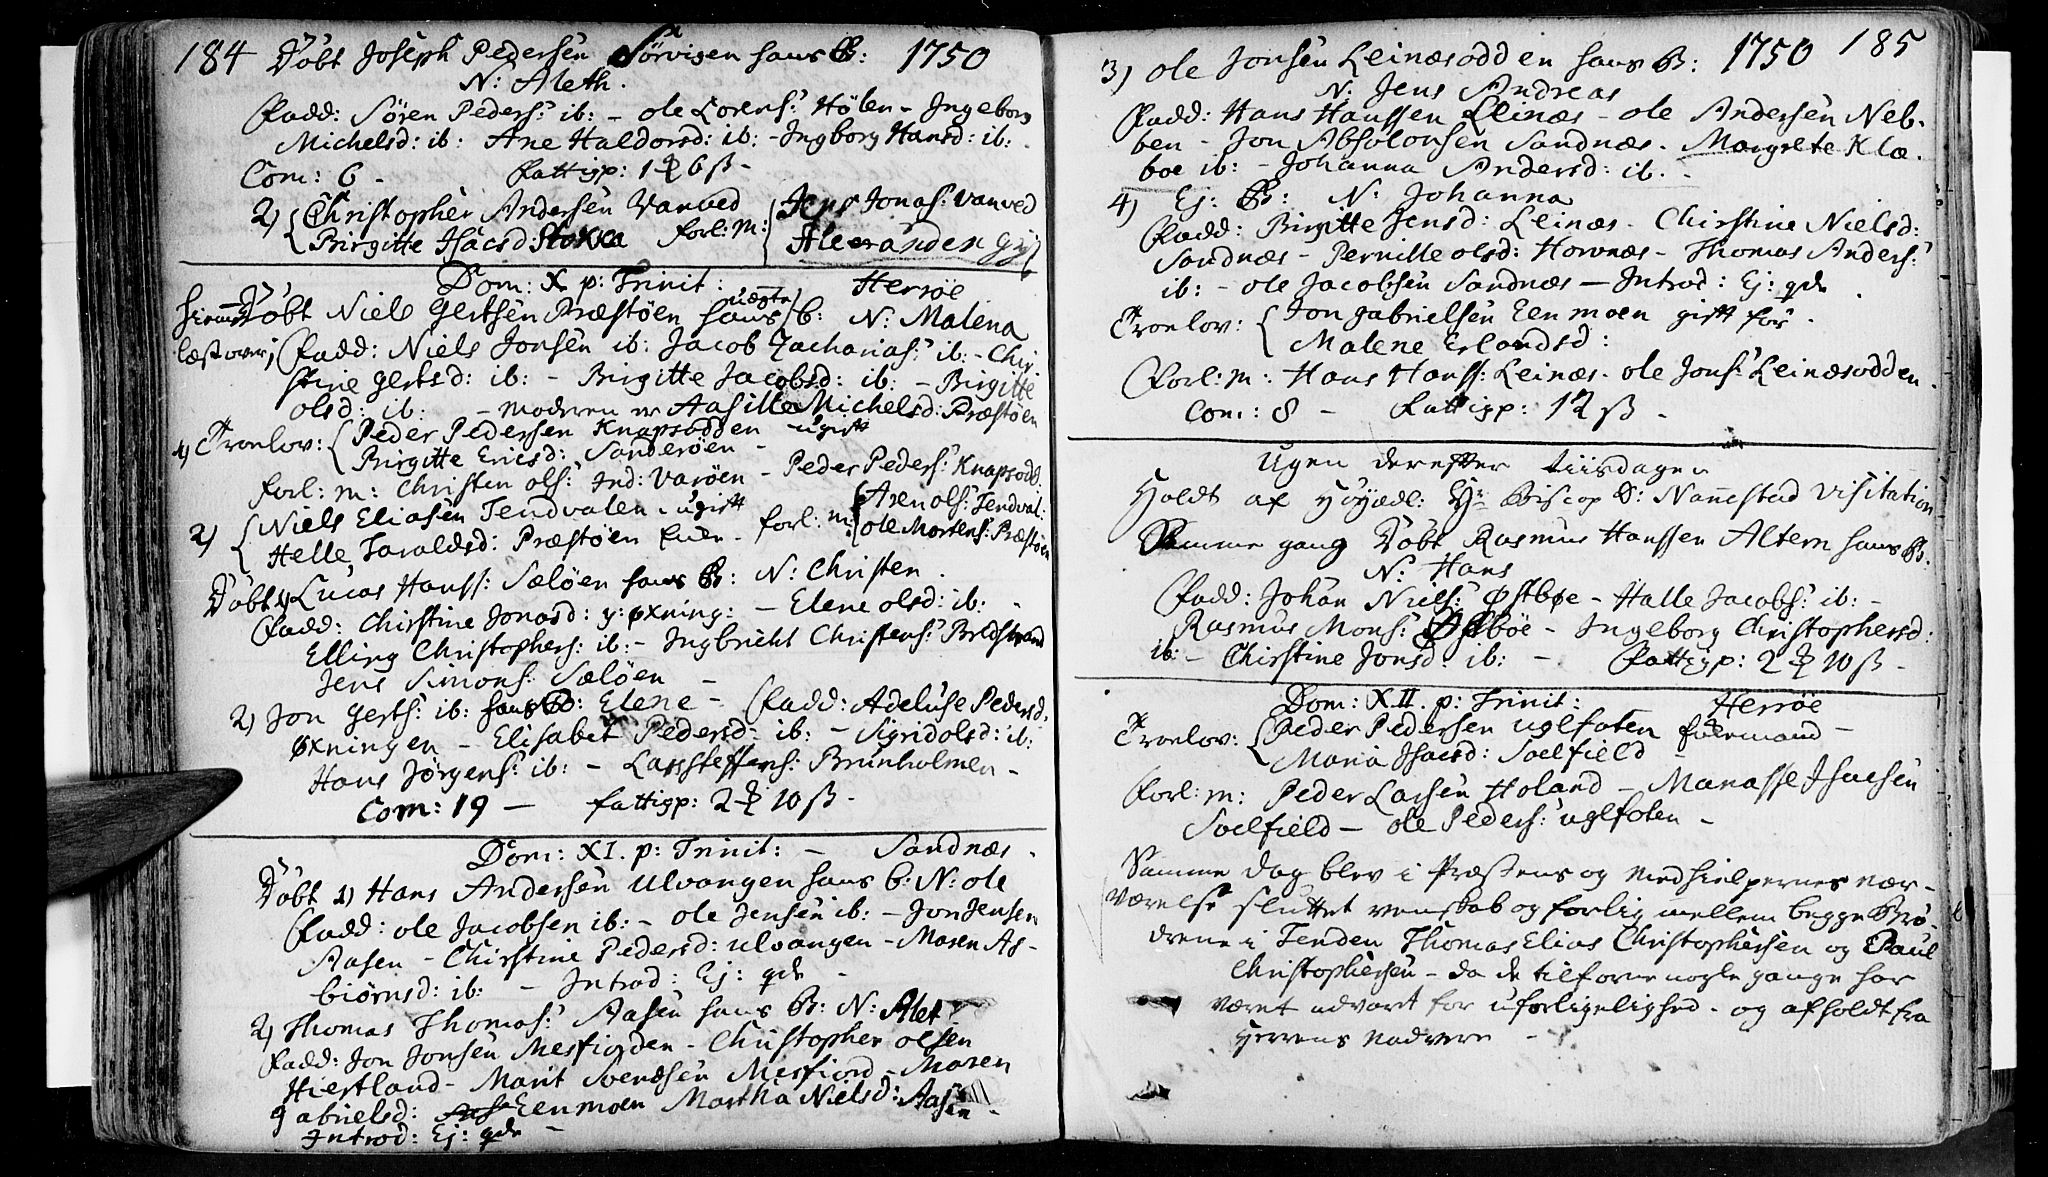 184 Döbt Joseph Pedersen Sörvigen hans B: 1750
N: Aleth.
Fadd: Sören Peders: ib: - ole Lorens: Hölen - Ingeborg
Michelsd: ib: Ane Haldorsd: ib: - Ingborg Hansd: ib:
Com: 6 - Fattigp: 1 6 ß -
2) Christopher Andersen Vanved Forl: M: Jens Jonas: Vanved
Birgitte Isacsd Stokka Alexander
Dom: X p: Trinit: Herröe
Hiemme Döbt Niels Gertsen Præstöen hans uægte b: N: Malena
læst over; Fadd: Niels Jonsen ib: Jacob Zacharias: ib: - Chir-
stine Gertsd: ib: - Birgitte Jacobsd: ib: - Birgitte
olsd: ib: - Moderen er Aasille Michelsd: Præstöen
1) Troelov: Peder Pedersen Knapsodden ugift
Birgitte Ericsd: Sanderöen -
Forl: M: Christen ols: Ind: Varöen - Peder Peders: Knapsodd.
2) Niels Eliasen Tendvalen - ugift Forl: M: Aren ols: Tendval:
Helle Taraldsd: Præstöen Enke - ole Mortens: Præstöen
Döbt 1) Lucas Hanss: Sælöen hans B: N: Christen.
Fadd: Chirstine Jonasd: y: Øxning: - Elene olsd: ib:
Elling Christophers: ib: - Ingbricht Christens: Bredstrand
Jens Simons: Sælöen -
2) Jon Gerts: ib: hans B: Elene - Fadd: Adeluse Pedersd.
Øxningen - Elisabet Pedersd: ib: - Sigrid olsd: ib:
Hans Jörgens: ib: - Lars Steffens: Brunholmen -
Com: 19 - Fattigp: 2 10 ß -
Dom: XI. p: Trinit: - Sandnæs.
Döbt 1) Hans Andersen Ulvangen hans b: N: ole
Fadd: ole Jacobsen ib: - ole Jensen ib: - Jon Jensen
Aasen - Chirstine Pedersd: Ulvangen - Maren As-
biörnsd: ib: - Introd: Ej: qde -
2) Thomas Thomas: Aasen hans B: N: Alet
Fadd: Jon Jonsen Mesfiorden - Christopher olsen
Hiertland - Marit Svendsen Mesfiord - Maren
gabrielsd: Eenmoen Martha Nielsd: Aasen -
Introd: Ej: qde -
3) ole Jonsen Leinæsodden hans B: 1750 185
N: Jens Andreas
Fadd: Hans Hanssen Leinæs - ole Andersen Neb-
ben - Jon Absolonsen Sandnæs - Margrete Klæ-
boe ib: - Johanna Andersd: ib. -
4) Ej: B: N: Johanna
Fadd: Birgitte Jensd: Leinæs - Chirstine Nielsd:
Sandnæs - Pernille olsd: Hovnæs - Thomas Anders:
ib: - ole Jacobsen Sandnæs - Introd: Ej: qde.
Troelov: Jon gabrielsen Eenmoen gift för.
Malene Erlandsd:
Forl: M: Hans Hanss: Leinæs - ole Jons: Leinæsodden.
Com: 8 - Fattigp: 12 ß -
Ugen derefter tiisdagen
Holdt af Höyædl: Hr Biscop Nannestad Visitation
Samme gang Döbt Rasmus Hanssen Altern hans B:
N: Hans
Fadd: Johan Niels: Østböe - Halle Jacobs: ib: -
Rasmus Mons: Østböe - Ingeborg Christophersd:
ib: - Chirstine Jonsd: ib: - Fattigp: 2 10 ß -
Dom: XII. p: Trinit: Herröe
Troelov: Peder Pedersen Uglfoten Enkemand -
Maria Isacsd: Soelfield -
Forl: M: Peder Larsen Holand - Manasse Isacsen
Soelfield - ole Peders: Uglfoten -
Samme dag blev i Præstens og Medhielpernes nær-
værelse sluttet venskab og forlig mellem begge Brö-
drene i Tenden Thomas Elias Christophersen og Paul
Christophersen - da de tilforne nogle gange har
været advaret for uforligelighed - og afholdt fra
Herrens Nadvere -